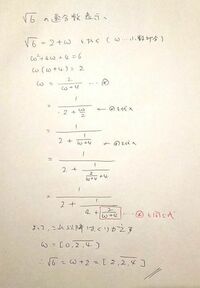 √6 の連分数表示、
√6 = 2 + ω とおく (ω … 小数部分)
ω² + 4ω + 4 = 6
ω (ω + 4) = 2
ω = 2/(ω+4) … ⊛
= 1/(2 + ω/2) ← ⊛を代入
= 1/(2 + 1/(ω+4)) ← ⊛を代入
= 1/(2 + 1/(2/(ω+4) + 4))
= 1/(2 + 1/(4 + 2/(ω+4))) ⊛と同じ式
よって、これ以降はくりかえす
ω = [0, 2, 4)
∴ √6 = ω + 2 = [2, 2, 4]